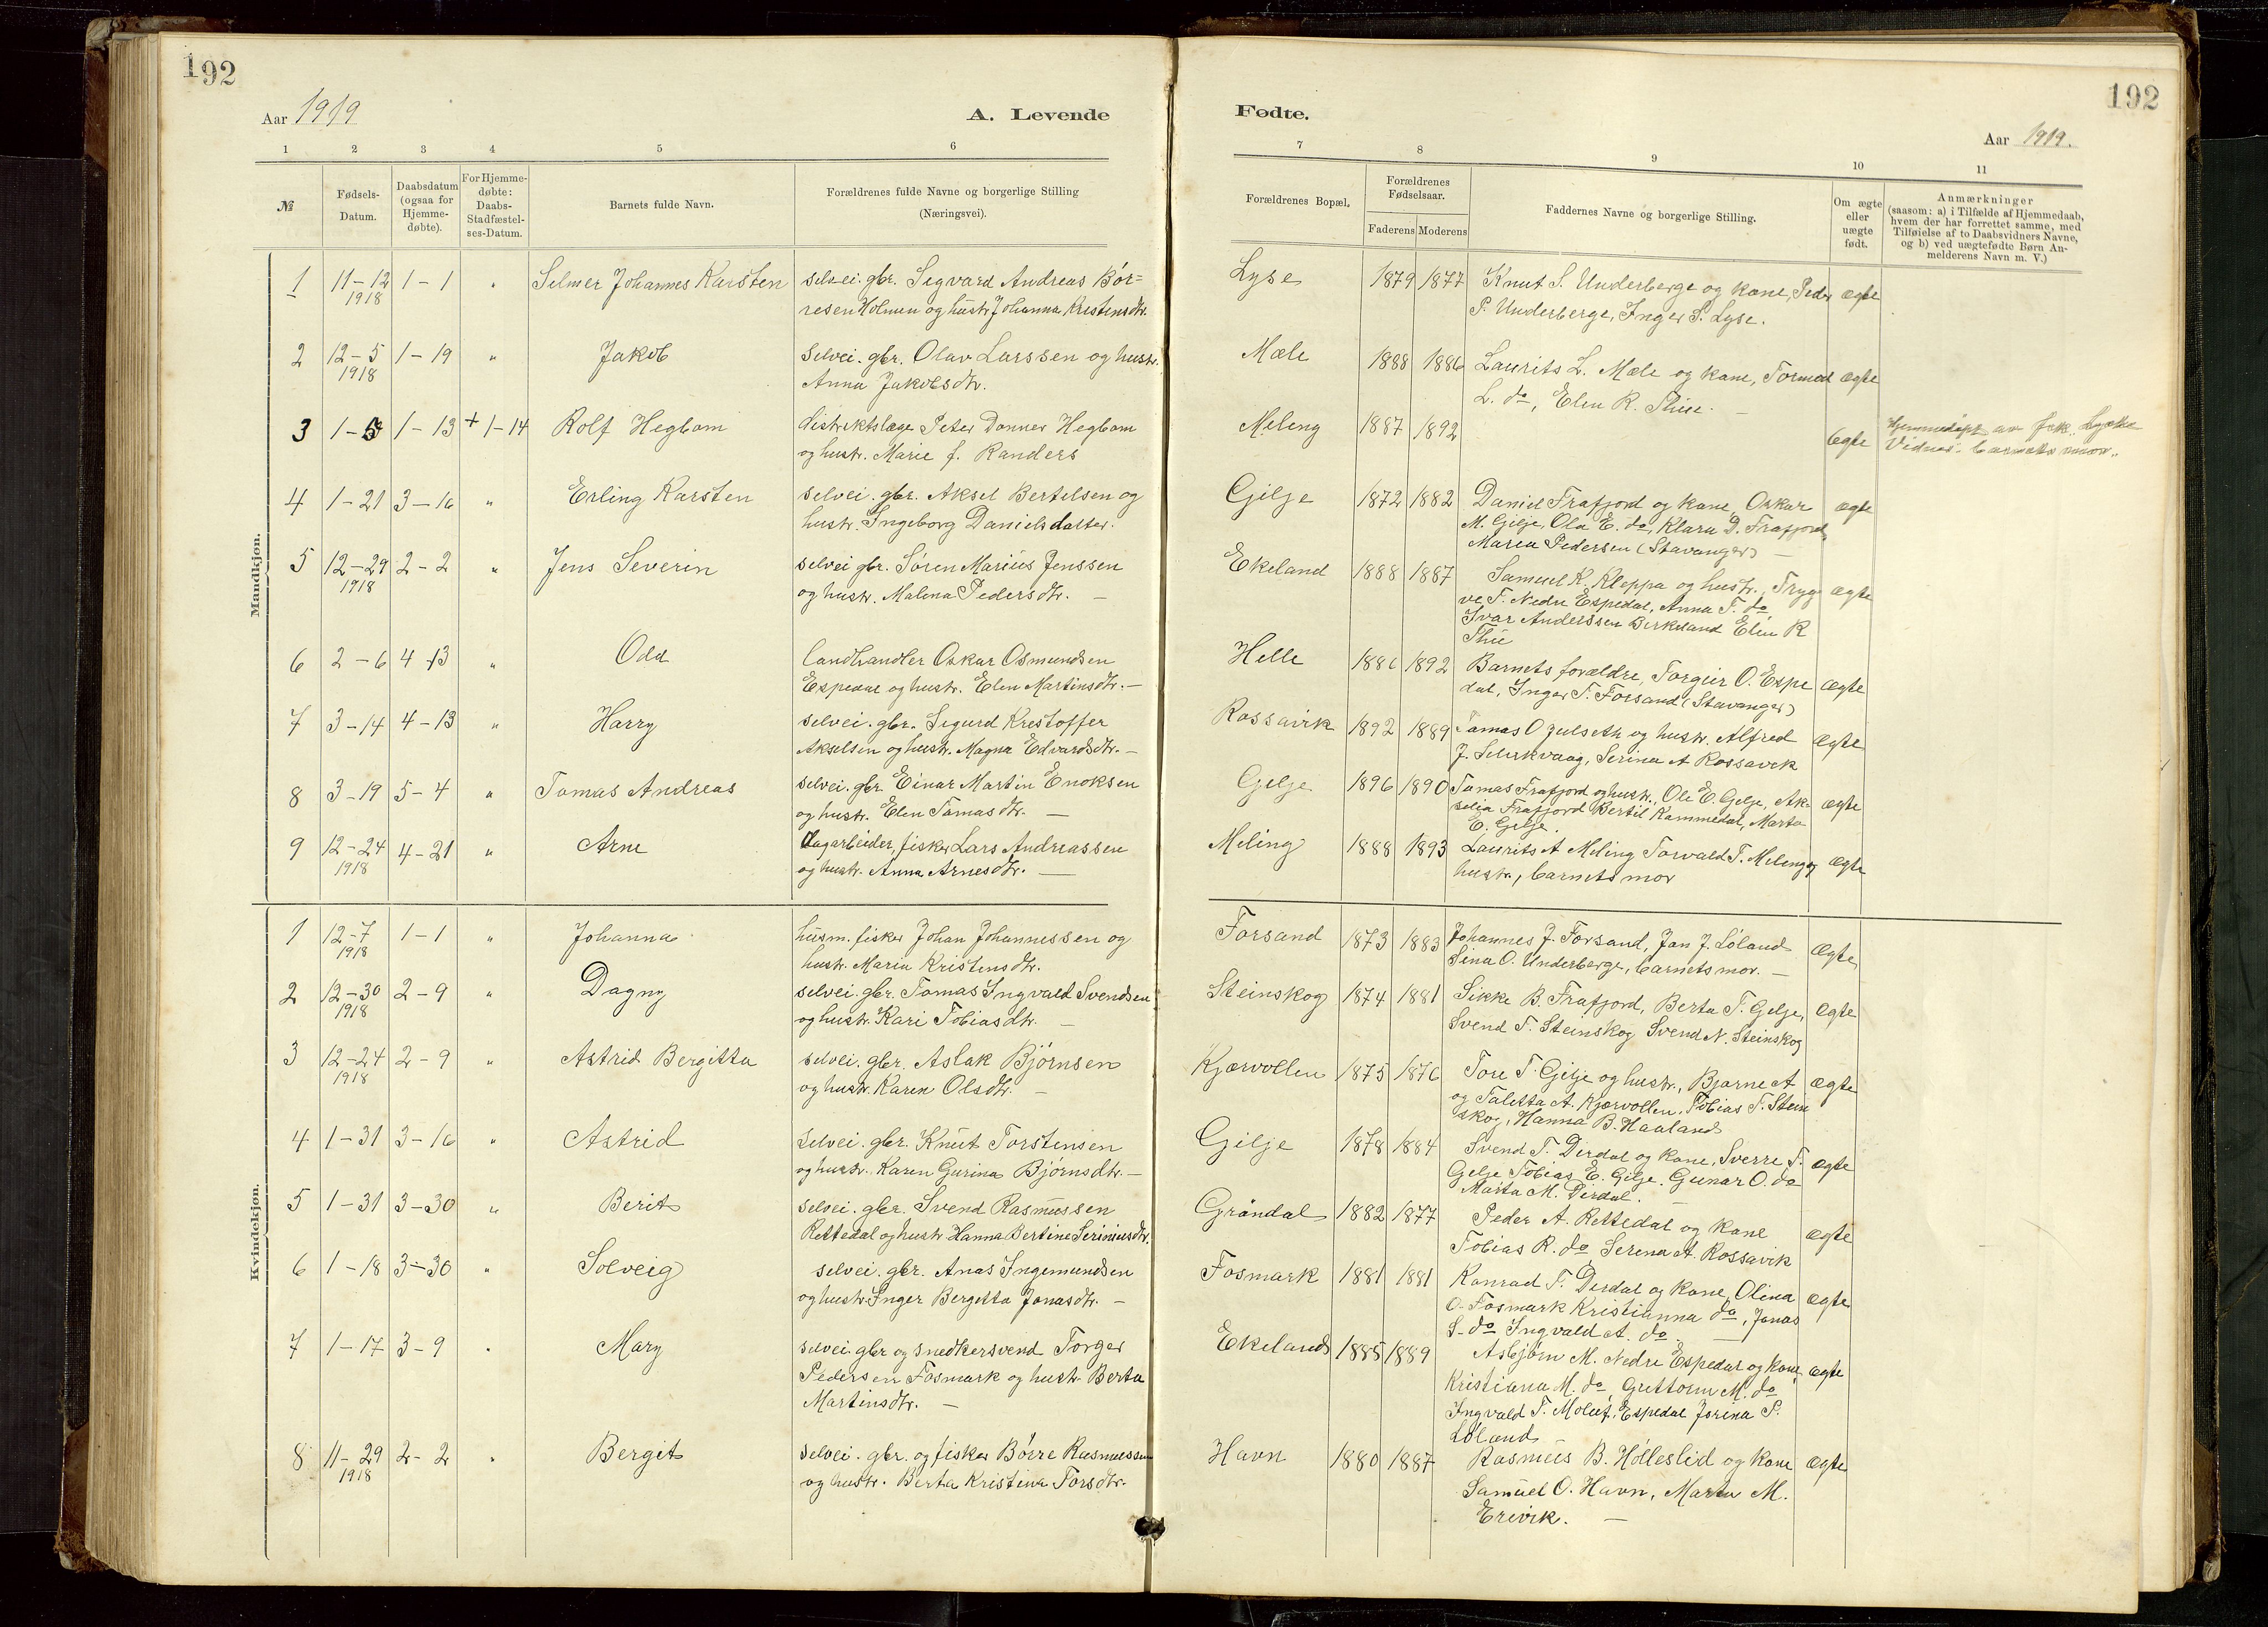 192
Aar 1919
A. Levende
1 2 3 4 5 6
№
Fødsels-Datum.
Daabsdatum (ogsaa for Hjemme-døbte).
For Hjemme-døbte: Daabs-Stadfæstel-ses-Datum.
Barnets fulde Navn.
Forældrenes fulde Navne og borgerlige Stilling
(Næringsvei).
Mandkjøn.
1 11-12 1-1 " Selmer Johannes Karsten selvei. gbr. Sigvard Andreas Bør=
1918 resen Holmen og hustr. Johanna Kristensdtr.
2 12-5 1-19 " Jakob selvei. gbr. Olav Larssen og hustr.
1918 Anna Jakobsdtr.
3 1-5 1-13 + 1-14 Rolf Hegbom distriktslæge Peter Donner Hegbom
og hustr. Marie f. Randers
4 1-21 3-16 " Erling Karsten selvei. gbr. Aksel Bertelsen og
hustr. Ingeborg Danielsdatter.
5 12-29 2-2 " Jens Severin selvei gbr. Søren Marius Jenssen
1918 og hustr. Malena Pedersdtr. —
6 2-6 4-13 " Odd landhandler Oskar Osmundsen
Espedal og hustr. Elen Martinsdtr. —
7 3-14 4-13 " Harry selvei. gbr. Sigurd Krestoffer
Akselsen og hustr. Magna Edvardsdtr. —
8 3-19 5-4 " Tomas Andreas selvei. gbr Einar Martin Enoksen
og hustr. Elen Tomasdtr. —
9 12-24 4-21 " Arne Dagarbeider, fisker Lars Andreassen
1918 og hustr. Anna Arnesdtr. —
Kvindekjøn.
1 12-7 1-1 " Johanna husm. fisker Johan Johannessen og
1918 hustr. Maria Kristensdtr.
2 12-30 2-9 " Dagny selvei. gbr. Tomas Ingvald Svendsen
1918 og hustr. Kari Tobiasdtr. —
3 12-24 2-9 " Astrid Bergitta selvei. gbr. Aslak Bjørnsen
1918 og hustr. Karen Olsdtr. —
4 1-31 3-16 " Astrid selvei. gbr. Knut Torstensen
og hustr. Karen Gurina Bjørnsdtr. —
5 1-31 3-30 " Berit selvei. gbr. Svend Rasmussen
Rettedal og hustr Hanna Bertine Seriniusdtr.
6 1-18 3-30 " Solveig selvei. gbr. Anas Ingemundsen
og hustr. Inger Bergitta Jonasdtr. —
7 1-17 3-9 " Mary selvei. gbr og snedkersvend Torger
Pedersen Fosmark og hustr Berta
Martinsdtr. —
8 11-29 2-2 " Bergit selvei. gbr. og fisker Børre Rasmussen
1918 og hustr. Berta Kristina Torsdtr.
192
Fødte.
Aar 1919.
7 8 9 10 11
Forældrenes Bopæl.
Forældrenes Fødselsaar.
Faderens Moderens
Faddernes Navne og borgerlige Stilling.
Om ægte eller uægte født.
Anmærkninger
(saasom: a) i Tilfælde af Hjemmedaab,
hvem der har forrettet samme, med
Tilføielse af to Daabsvidners Navne,
og b) ved uægtefødte Børn An-
melderens Navn m. V.)
Lyse 1879 1877 Knut S. Underberge og kone, Peder ægte
P. Underberge, Inger S. Lyse.
Mæle 1888 1886 Laurits L. Mæle og kone, Tormod ægte
L. do, Elen R. Thu. —
Meling 1887 1892 ægte Hjemmedøpt av frk. Lycke
Vidner: barnets mor.
Gilje 1872 1882 Daniel Frafjord og kone, Oskar ægte
M. Gilje, Ola E. do, Klara D. Frafjord
Maria Pedersen (Stavanger) —
Ekeland 1888 1887 Samuel K. Kleppa og hustr., Tryg ægte
ve T. Nedre Espedal, Anna T. do
Ivar Anderssen Birkeland Elin R
Thu
Helle 1886 1892 Barnets forældre, Torgier O. Espe ægte
dal, Inger T. Forsand (Stavanger)
Rossavik 1892 1889 Tomas O. Julseth og hustr. Alfred ægte
J. Selvkvaag, Serina A Rossavik
Gilje 1896 1890 Tomas Frafjord og hustr., Ole E. Gilje, Ak- ægte
selia Frafjord Bertil Kommedal, Marta
E. Gilje.
Meling 1888 1893 Laurits A Meling Torvald T. Meling og ægte
hustr., barnets mor
Forsand 1873 1883 Johannes J. Forsand, Jan J. Løland ægte
Sina O. Underberge, barnets mor. —
Steinskog 1874 1881 Sikke B. Frafjord, Berta T. Gilje, ægte
Svend T. Steinskog Svend N. Steinskog
Kjørvollen 1875 1876 Tore T. Gilje og hustr., Bjarne A ægte
og Taletta A. Kjørvollen, Tobias T. Stein
skog, Hanna B. Haaland
Gilje 1878 1884 Svend T. Dirdal og kone, Sverre T. ægte
Gilje Tobias E. Gilje. Gunar O. do
Marta M. Dirdal.
Grøndal 1882 1877 Peder A. Rettedal og kone ægte
Tobias R. do Serena A. Rossavik
Fosmark 1881 1881 Konrad T. Dirdal og kone, Olina ægte
O. Fosmark Kristianna do, Jonas
S. do Ingvald A. do. —
Ekeland 1885 1889 Asbjørn M. Nedre Espedal og kone, ægte
Kristiana M. do, Guttorm M. do
Ingvald T. Espedal Jorina P.
Løland
Havn 1880 1887 Rasmus B. Holleslid og kone ægte
Samuel O. Havn, Marta M.
Erevik. —